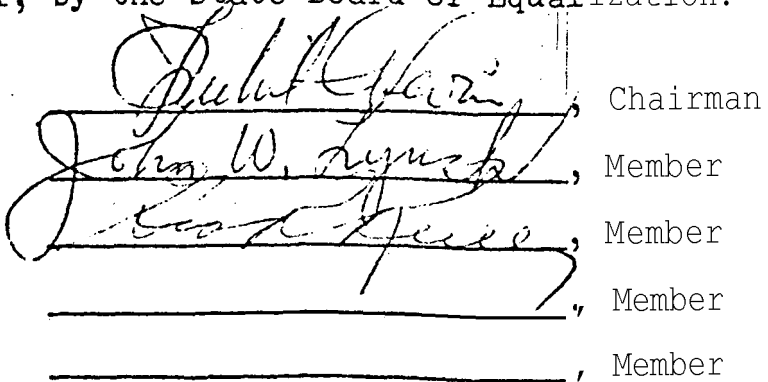 , by the State Board of Equalization.
, Chairman
John W. Lynch, Member
, Member
, Member
, Member